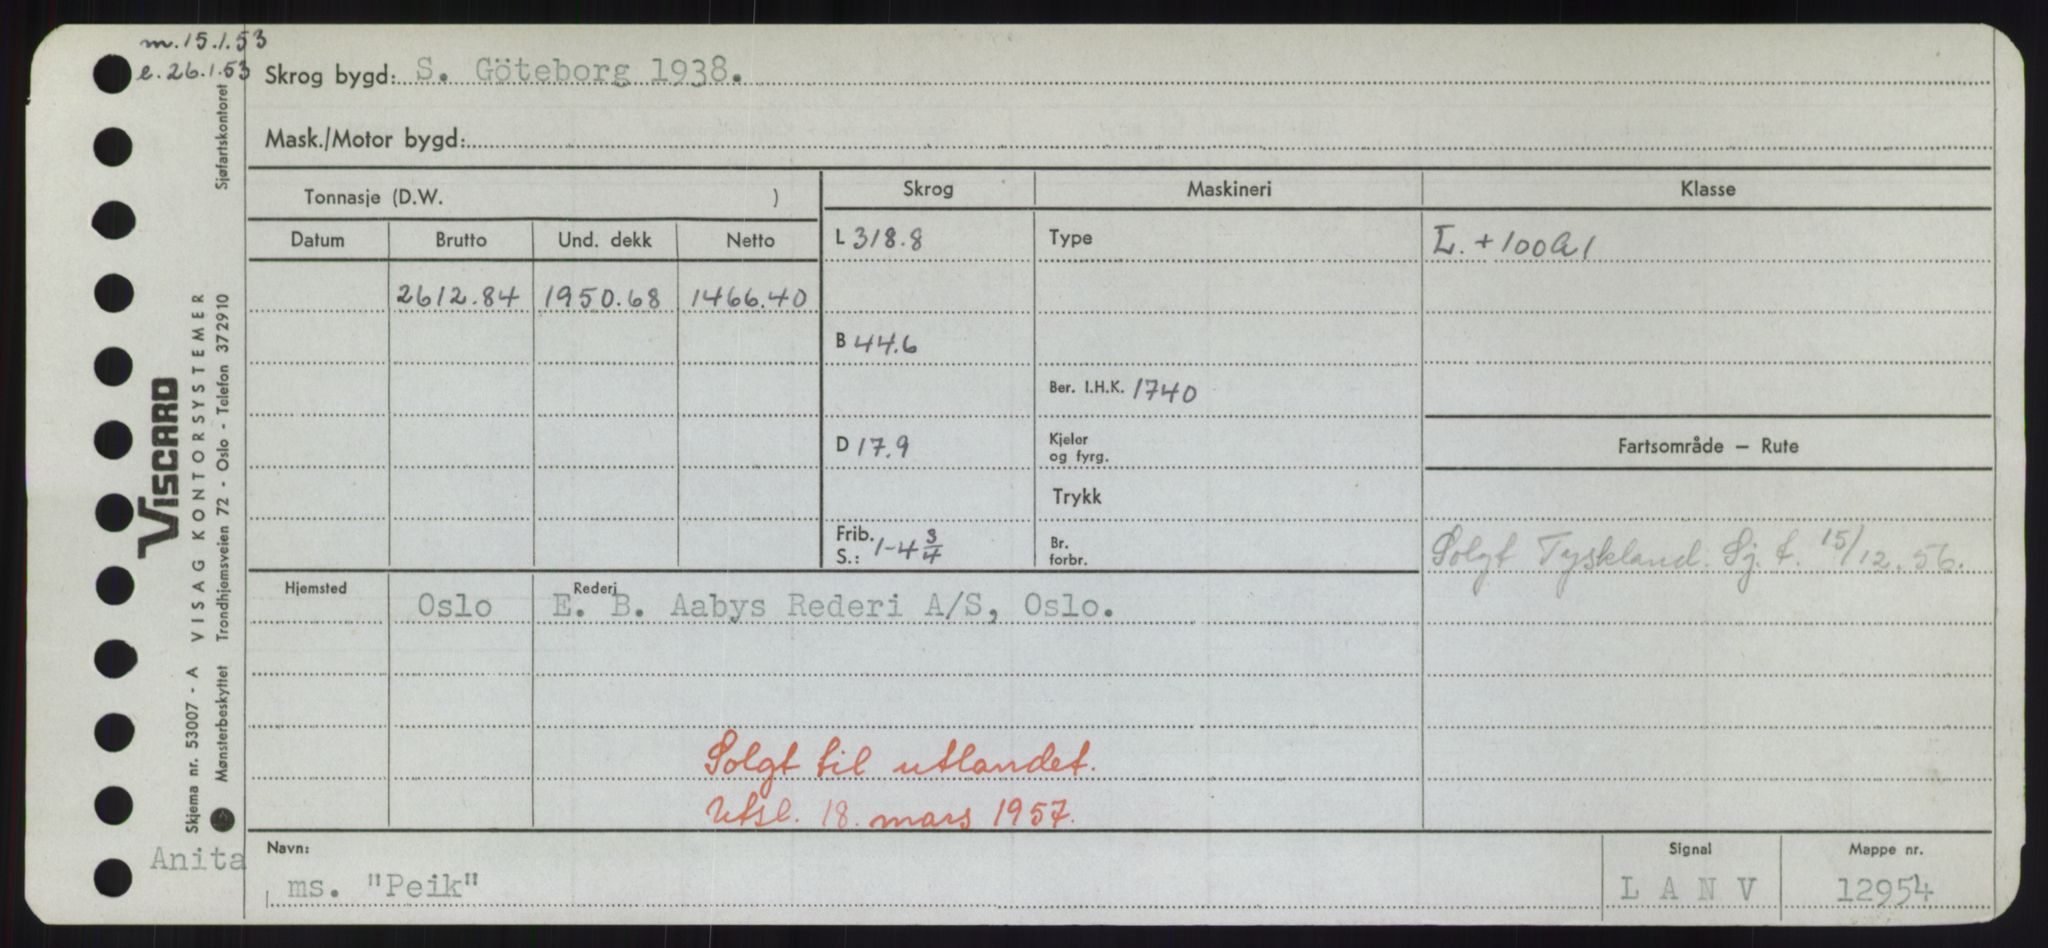 m. 15.1.53
e. 26.1.53
Skrog bygd: S. Göteborg 1938.
Mask./Motor bygd:
Tonnasje (D.W. )
Skrog
Maskineri
Klasse
Datum Brutto Und. dekk Netto
L 318.8
Type
L. + 100 A 1
2612.84 1950.68 1466.40
B 44.6
Ber. I.H.K. 1740
D 17.9
Kjeler
og fyrg.
Fartsområde — Rute
Trykk
Frib.
S.: 1-4 3/4
Br.
forbr.
Solgt Tyskland. Sj. t. 15/12.56.
Hjemsted Oslo
Rederi E. B. Aabys Rederi A/S, Oslo.
Solgt til utlandet.
Utsl. 18. mars 1957.
Navn:
Anita
ms. "Peik"
Signal
L A N V
Mappe nr.
12954
VISCARD
Skjema nr. 53007 - A VISAG KONTORSYSTEMER
Mønsterbeskyttet Trondhjemsveien 72 - Oslo - Telefon 372910 Sjøfartskontoret